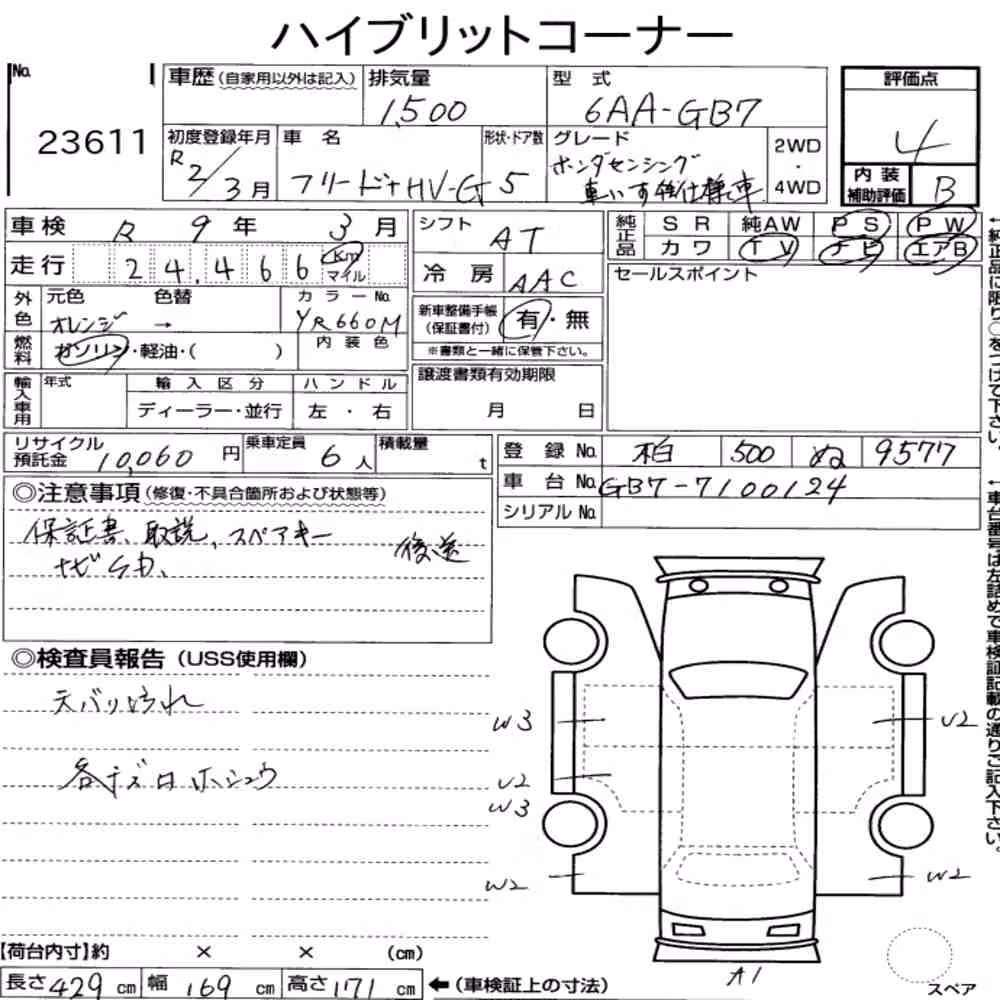 ハイブリットコーナー
No. 23611
車歴(自家用以外は記入) 排気量 1,500 型式 6AA-GB7
初度登録年月 R2/3月 車名 フリード+HV-G 形状・ドア数 5 グレード ホンダセンシング 車いす仕様車 2WD・4WD
評価点 4
内装補助評価 B
車検 R 9年 3月
走行 24,466 Km マイル
外色 元色 オレンジ 色替 → カラーNo. YR660M
燃料 ガソリン・軽油・( ) 内装色
輸入車用 年式 輸入区分 ディーラー・並行 ハンドル 左・右
シフト AT
冷房 AAC
新車整備手帳(保証書付) 有・無
※書類と一緒に保管下さい。
譲渡書類有効期限 月 日
純正品 SR 純AW PS PW
カワ TV ナビ エアB
セールスポイント
←純正品に限り○をつけて下さい。
リサイクル預託金 10,060円 乗車定員 6人 積載量 t
登録No. 柏 500 ぬ 9577
車台No. GB7-7100124
シリアルNo.
←車台番号は左詰めで車検証記載の通りご記入下さい。
◎注意事項(修復・不具合箇所および状態等)
保証書、取説、スペアキー 後送
ナビSD、
◎検査員報告(USS使用欄)
天バリ汚れ
各キズロホシュウ
W3
U2
U2
W3
W2
W2
A1
スペア
【荷台内寸】約 × × (cm)
長さ 429 cm 幅 169 cm 高さ 171 cm ←(車検証上の寸法)